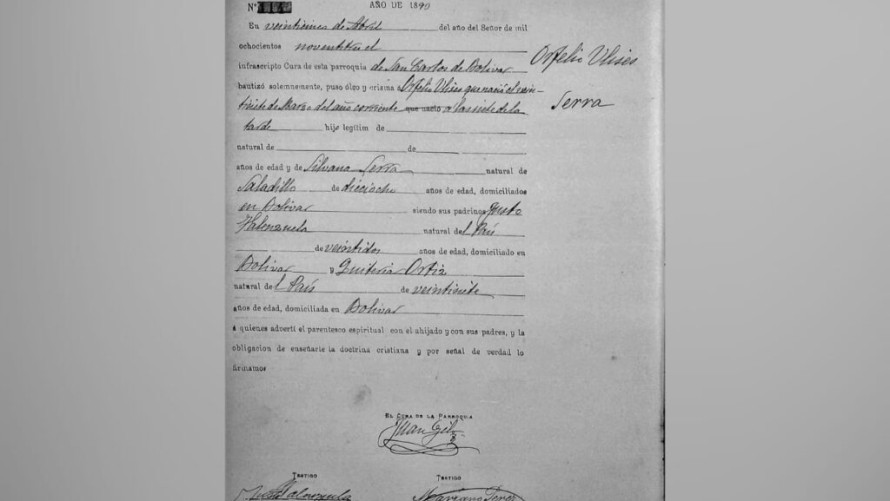 Nº 114 AÑO DE 1893
En veintinueve de Abril del año del Señor de mil
ochocientos noventitres el
infrascripto Cura de esta parroquia de San Carlos de Bolivar
bautizó solemnemente, puso óleo y crisma a Orfelio Ulises que nació el vein-
tisiete de Marzo del año corriente que nació a las siete de la
tarde hijo legítim de
natural de de
años de edad y de Silvana Serra natural de
Saladillo de dieciocho años de edad, domiciliados
en Bolivar siendo sus padrinos Justo
Valenzuela natural del País
de veintidos años de edad, domiciliado en
Bolivar y Quiteria Ortiz
natural del País de veintisiete
años de edad, domiciliada en Bolivar
a quienes advertí el parentesco espiritual con el ahijado y con sus padres, y la
obligacion de enseñarle la doctrina cristiana y por señal de verdad lo
firmamos
Orfelio Ulises
Serra
EL CURA DE LA PARROQUIA
Juan Gil
TESTIGO TESTIGO
Justo Valenzuela Mariano Perez